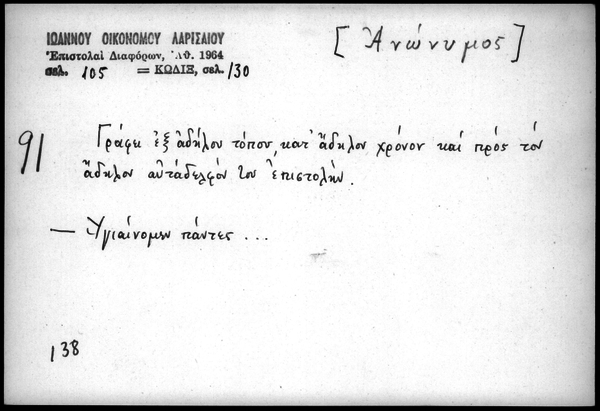 ΙΩΑΝΝΟΥ ΟΙΚΟΝΟΜΟΥ ΛΑΡΙΣΑΙΟΥ
Ἐπιστολαὶ Διαφόρων, Ἀθ. 1964
σελ. 105 = ΚΩΔΙΞ, σελ. 130
[Ἀνώνυμος]
91
Γράφει ἐξ ἀδήλου τόπου, κατ' ἄδηλον χρόνον καὶ πρὸς τὸν
ἄδηλον αὐτάδελφόν του ἐπιστολήν.
— Ὑγιαίνομεν πάντες ...
138